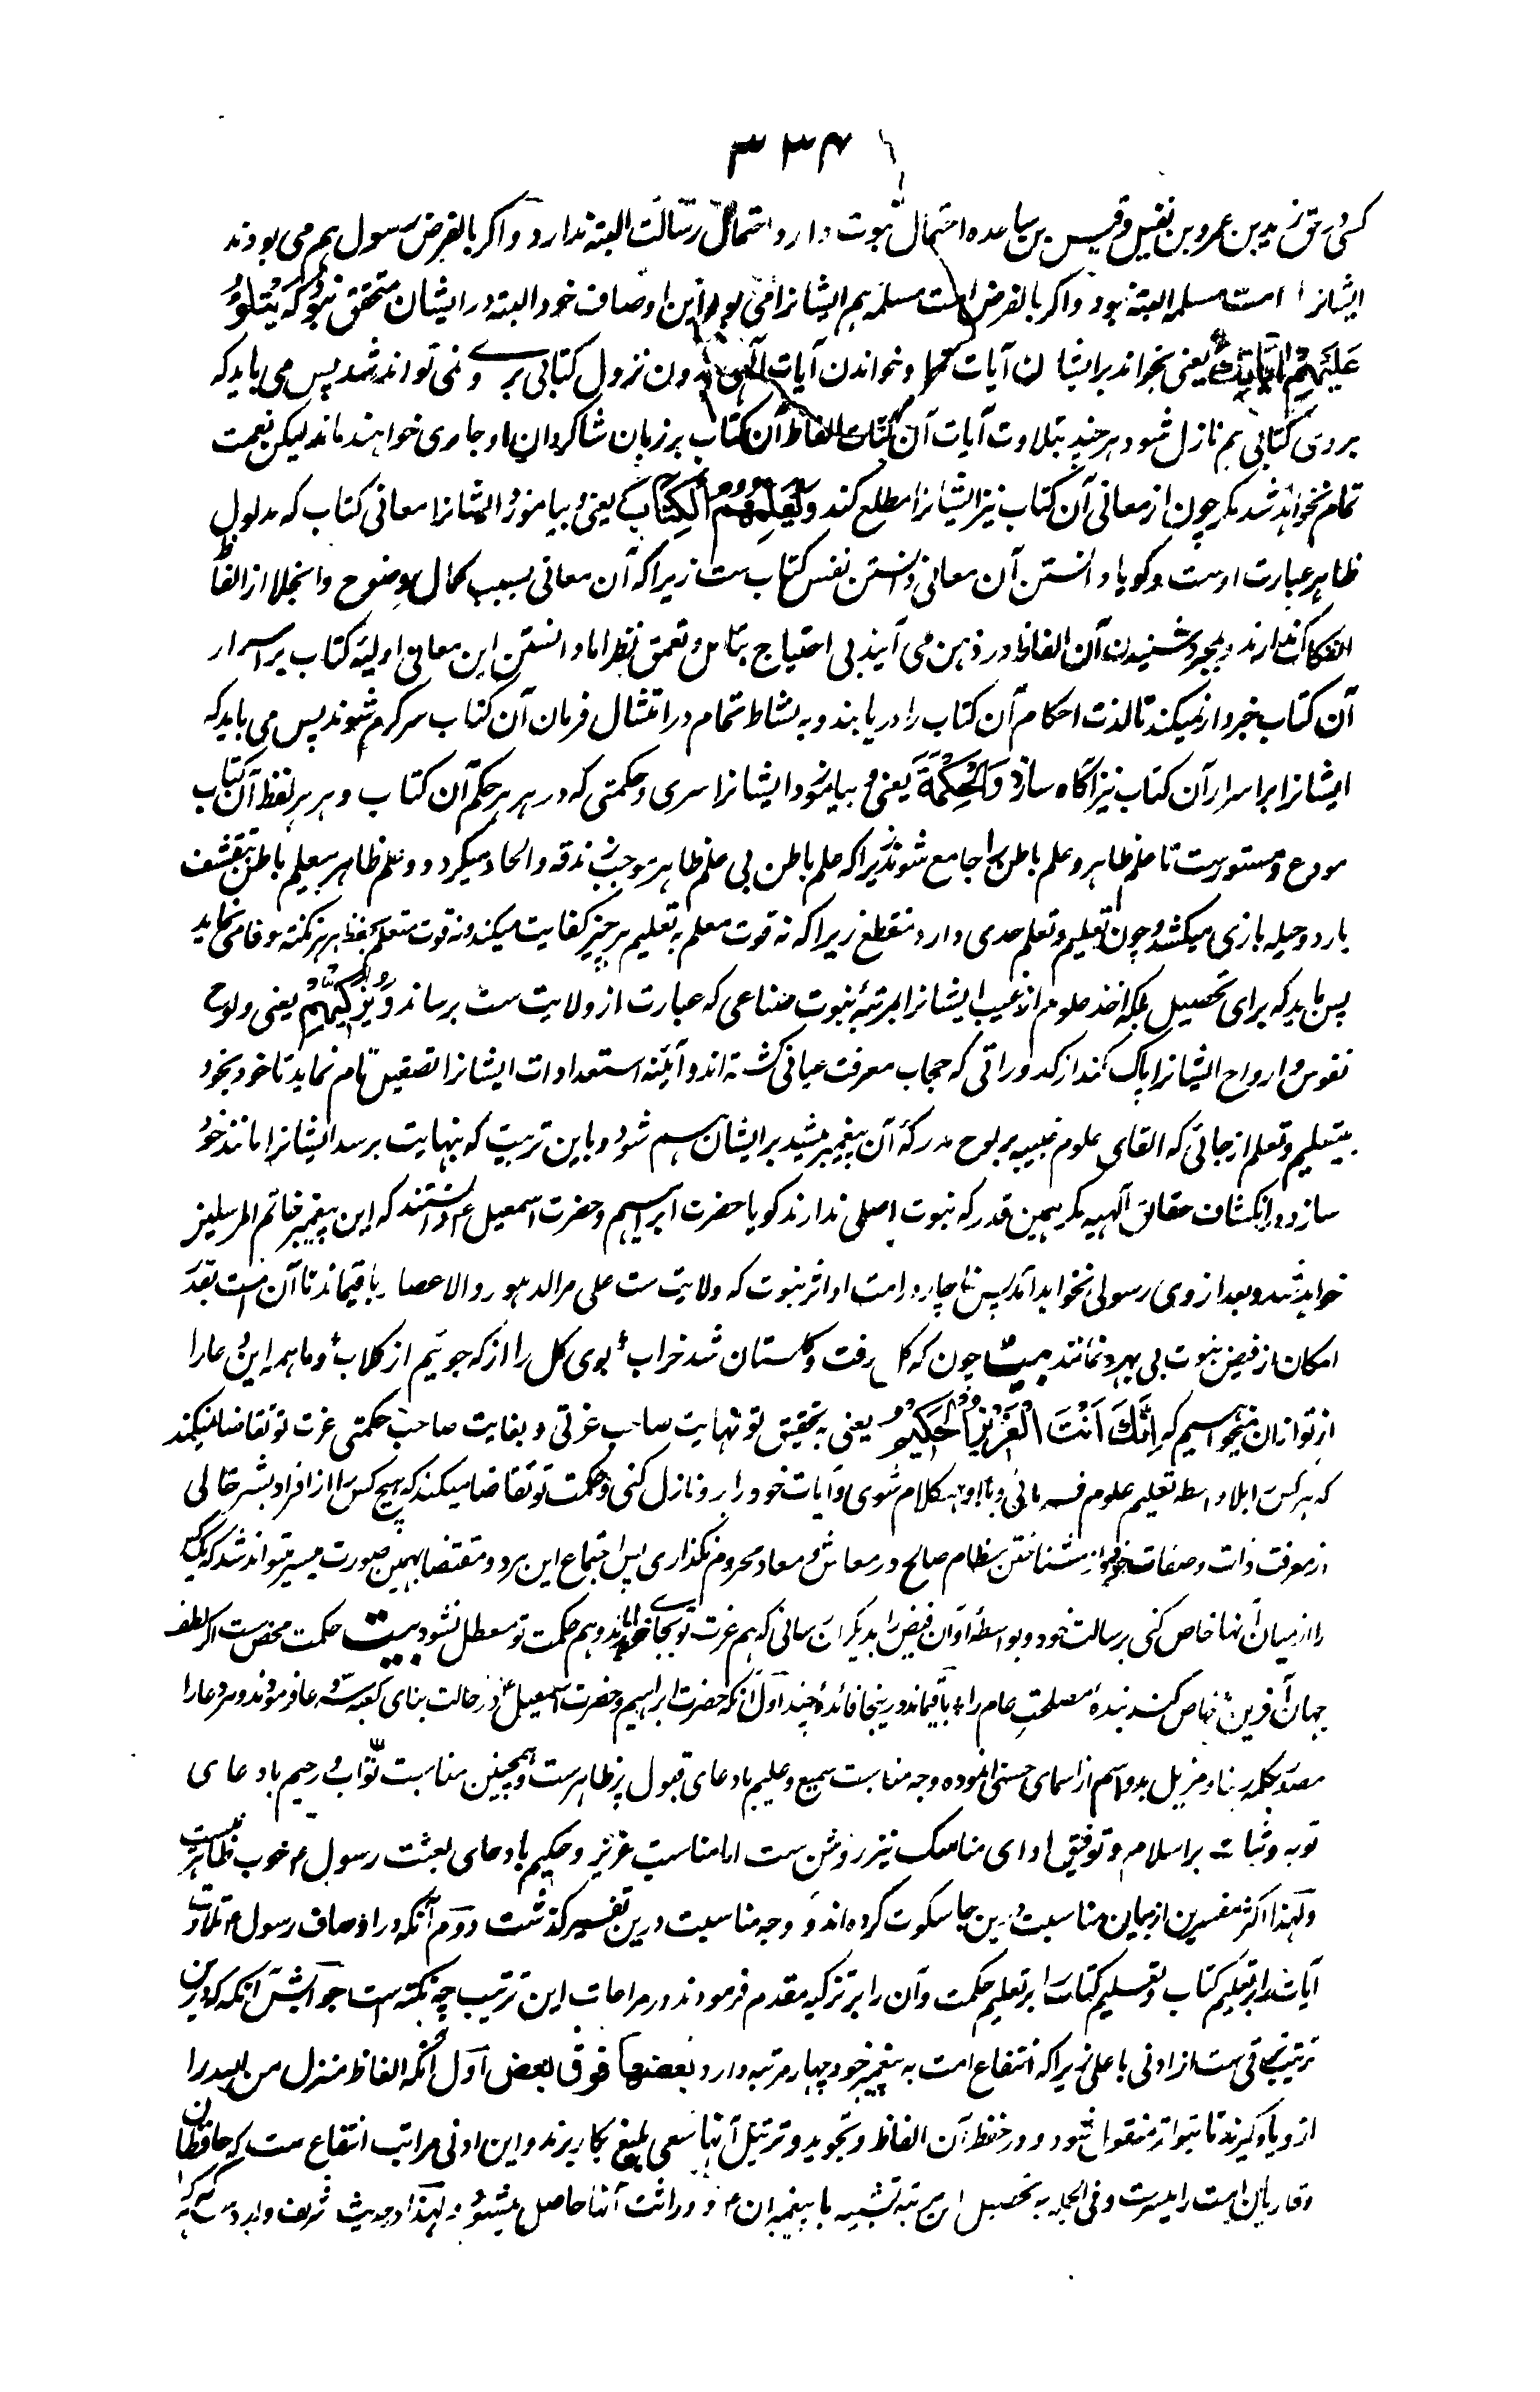 ۳۳۴
کسی در حق زید بن عمرو بن نفیل و قیس بن ساعده احتمال نبوت دارد احتمال رسالت البته ندارد و اگر بالفرض رسول هم می بودند
ایشانرا امت مسلمه البته نبود و اگر بالفرض امت مسلمه هم ایشانرا می بود این اوصاف خود البته در ایشان متحقق نبود که یَتْلُوْ
عَلَیْهِمْ اٰیَاتِكَ یعنی بخواند بر ایشان آیات ترا و خواندن آیات الهی بدون نزول کتابی بر وے نمی تواند شد پس می باید که
بر وی کتابی هم نازل شود هر چند بتلاوت آیات آن کتاب الفاظ آن کتاب بر زبان شاگردان او جاری خواهند ماند لیکن نعمت
تمام نخواهد شد مگر چون از معانی آن کتاب نیز ایشانرا مطلع کند وَیُعَلِّمُهُمُ الْکِتَابَ یعنی و بیاموزد ایشانرا معانی کتاب که مدلول
ظاهر عبارت اوست و گویا دانستن آن معانی دانستن نفس کتاب ست زیرا که آن معانی بسبب کمال وضوح و انجلا از الفاظ
انفکاک ندارند و بمجرد شنیدن آن الفاظ در ذهن می آیند بی احتیاج بتامل و تعمق نظر اما دانستن این معانی اولیه کتاب بر اسرار
آن کتاب خبردار نمیکند تا لذت احکام آن کتاب را دریابند و به نشاط تمام در امتثال فرمان آن کتاب سرگرم شوند پس می باید که
ایشانرا بر اسرار آن کتاب نیز آگاه سازد وَالْحِکْمَةَ یعنی و بیاموزد ایشانرا سری و حکمتی که در هر هر حکم آن کتاب و هر هر لفظ آن کتاب
مودع و مستورست تا علم ظاهر و علم باطن را جامع شوند زیرا که علم باطن بی علم ظاهر موجب زندقه و الحاد میگردد و علم ظاهر بیعلم باطن بتقشف
بارد و حیله بازی میکشد و چون تعلیم و تعلم حدی دارد منقطع زیرا که نه قوت معلم به تعلیم هر چیز کفایت میکند و نه قوت متعلم بحفظ هر هر نکته وفا می نماید
پس باید که برای تحصیل ملکه اخذ علوم از غیب ایشانرا بمرتبه نبوت صناعی که عبارت از ولایت ست برساند وَیُزَکِّیْهِمْ یعنی و لوح
نفوس و ارواح ایشانرا پاک کند از کدوراتی که حجاب معرفت عیانی گشته اند و آئینه استعدادات ایشانرا تصقیل تام نماید تا خود بخود
بیتعلیم و تعلم از جائی که القای علوم غیبیه بر لوح مدرکهٔ آن پیغمبر میشد بر ایشان هم شود و باین تربیت که بنهایت برسد ایشانرا مانند خود
سازد در انکشاف حقائق الهیه مگر همین قدر که نبوت اصلی ندارند گویا حضرت ابراهیم و حضرت اسمعیل ء دانستند که این پیغمبر خاتم المرسلین
خواهد شد و بعد از وی رسولی نخواهد آمد پس ناچار در امت او اثر نبوت که ولایت ست علی مر الدهور و الاعصار باقیماند تا آن امت بقدر
امکان از فیض نبوت بی بهره نمانند بیت چون که گل رفت و گلستان شد خراب ٭ بوی گل را از که جوئیم از گلاب ٭ و ما همه این دعا را
از تو ازان میخواهیم که اِنَّكَ اَنْتَ الْعَزِیْزُ الْحَکِیْمُ یعنی به تحقیق تو نهایت صاحب عزتی و بغایت صاحب حکمتی عزت تو تقاضا میکند
که هر کس را بلا واسطه تعلیم علوم فرمائی و با او همکلام شوی و آیات خود را برو نازل کنی و حکمت تو تقاضا میکند که هیچ کس را از افراد بشر خالی
از معرفت ذات و صفات خود و از شناختن نظام صالح در معاش و معاد محروم نگذاری پس اجتماع این هر دو مقتضا بهمین صورت میسر میتواند شد که یک کس
را از میان آنها خاص کنی برسالت خود و بواسطهٔ او آن فیض را بدیگران رسانی که هم عزت تو بجای خود ماند و هم حکمت تو معطل نشود بیت حکمت محض ست اگر لطف
جهان آفرین ٭ خاص کند بندهٔ مصلحت عام را ٭ باقیماند درینجا فائدهٔ چند اول آنکه حضرت ابراهیم و حضرت اسمعیل ء در حالت بنای کعبه سه دعا فرمودند و هر دعا را
مصدر بکلمه ربنا و مذیل بدو اسم از اسمای حسنی نموده وجه مناسبت سمیع و علیم با دعای قبول پر ظاهرست و همچنین مناسبت تواب و رحیم با دعای
توبه و ثبات بر اسلام و توفیق ادای مناسک نیز روشن ست اما مناسبت عزیز و حکیم با دعای بعثت رسول ء خوب ظاهر نیست
و لهذا اکثر مفسرین از بیان مناسبت درین جا سکوت کرده اند و وجه مناسبت درین تفسیر گذشت دوم آنکه در اوصاف رسول ء تلاوت
آیات را بر تعلیم کتاب و تعلیم کتاب را بر تعلیم حکمت و آن را بر تزکیه مقدم فرمودند در مراعات این ترتیب چه نکته است جوابش آنکه که درین
ترتیب ترقی ست از ادنی باعلی زیرا که انتفاع امت به پیغمبر خود چهار مرتبه دارد بعضها فوق بعض اول آنکه الفاظ منزل من الله را
ازو یاد گیرند تا بتواتر منقول شود و در حفظ آن الفاظ و تجوید و ترتیل آنها سعی بلیغ بکار برند و این ادنی مراتب انتفاع ست که حافظان
و قاریان امت را میسرست و فی الجمله به تحصیل این مرتبه تشبیه با پیغمبران ء و وراثت آنها حاصل میشود و لهذا در حدیث شریف وارد ست که